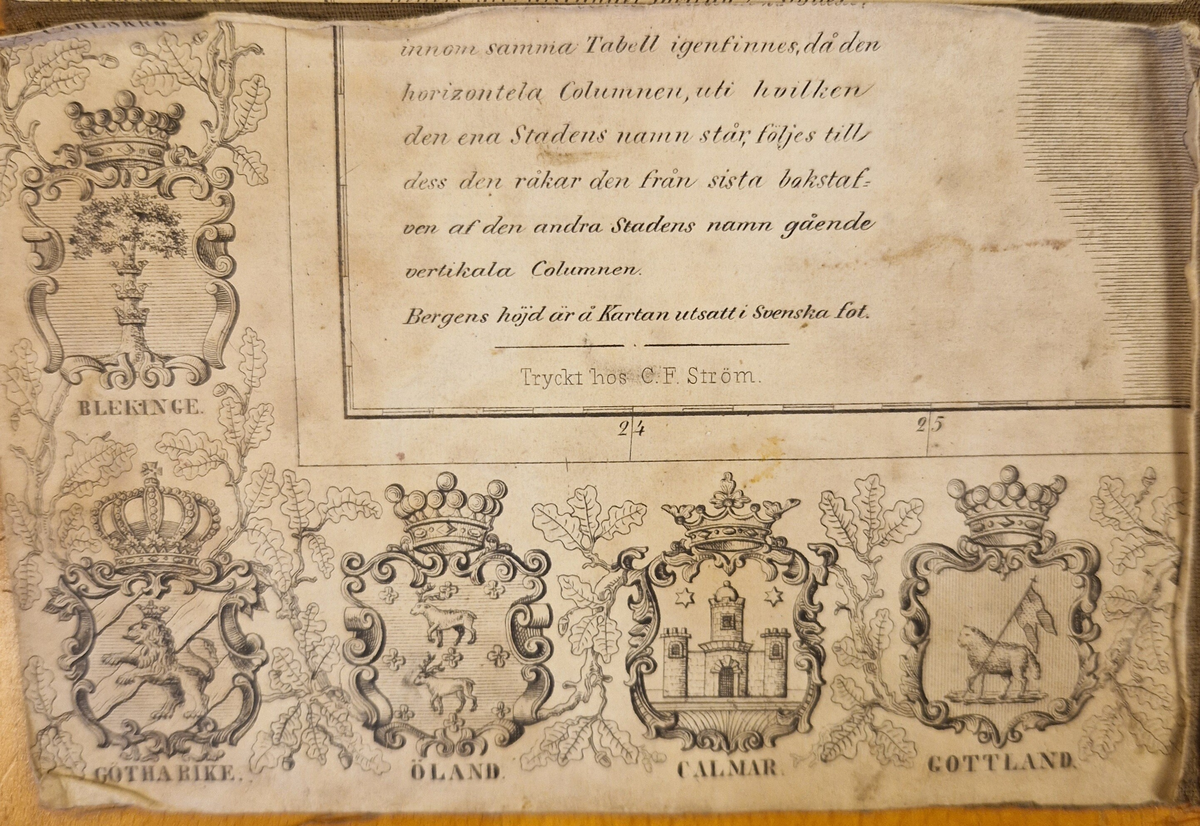 innom samma Tabell igenfinnes, då den
horizontela Columnen, uti hvilken
den ena Stadens namn står, följes till
dess den råkar den från sista bokstaf=
ven af den andra Stadens namn gående
vertikala Columnen.
Bergens höjd är å Kartan utsatt i Svenska fot.
Tryckt hos C.F. Ström.
24 25
BLEKINGE.
GÖTHARIKE.
ÖLAND.
CALMAR.
GOTTLAND.